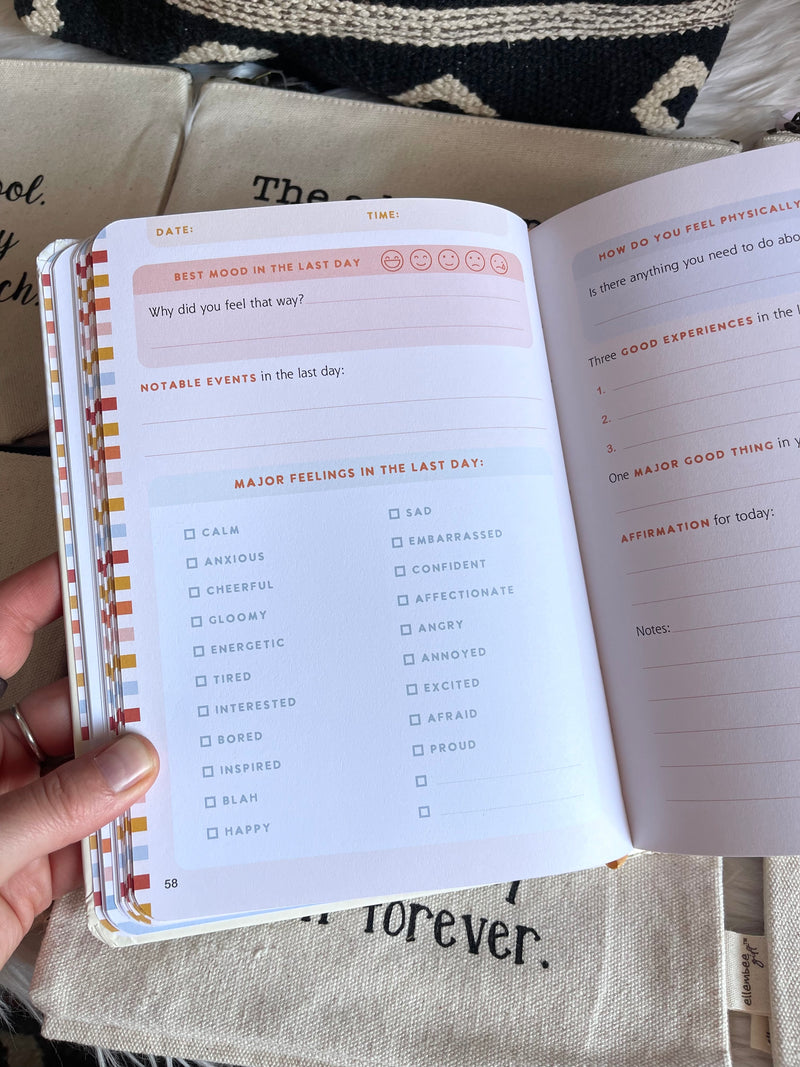 ool.
The
DATE:
TIME:
BEST MOOD IN THE LAST DAY
Why did you feel that way?
NOTABLE EVENTS in the last day:
MAJOR FEELINGS IN THE LAST DAY:
CALM
ANXIOUS
CHEERFUL
GLOOMY
ENERGETIC
TIRED
INTERESTED
BORED
INSPIRED
BLAH
HAPPY
SAD
EMBARRASSED
CONFIDENT
AFFECTIONATE
ANGRY
ANNOYED
EXCITED
AFRAID
PROUD
58
HOW DO YOU FEEL PHYSICALLY
Is there anything you need to do abo
Three GOOD EXPERIENCES in the l
1.
2.
3.
One MAJOR GOOD THING in y
AFFIRMATION for today:
Notes:
forever.
ellembee™
gift